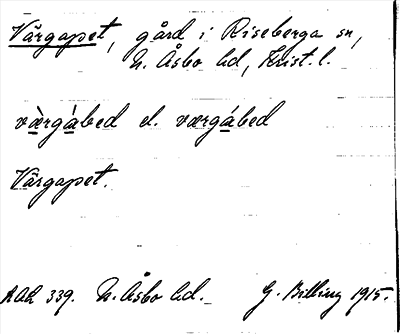 Vårgapet, gård i Riseberga sn,
N. Åsbo hd, Krist. l.
værgàbed el. værgàbed
Vårgapet.
AOR 339. N. Åsbo hd. G. Billing 1915.